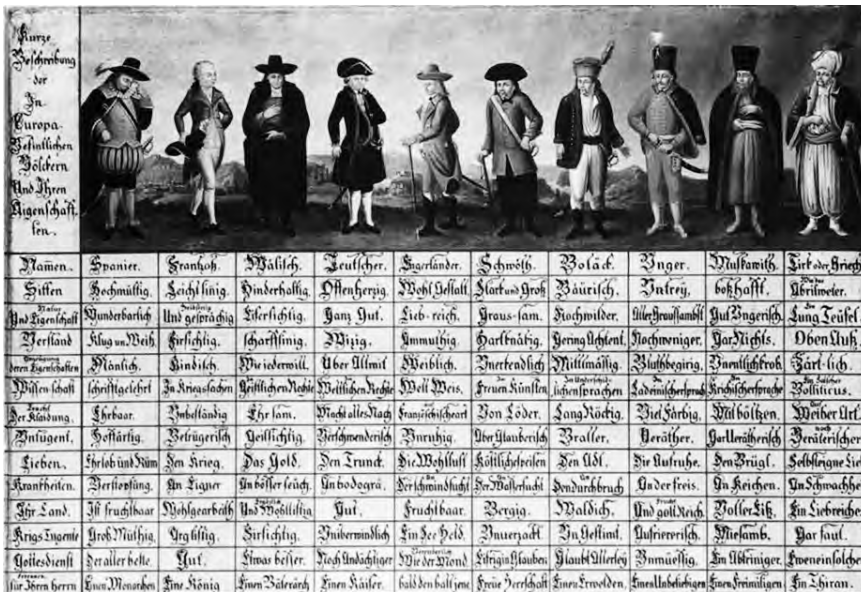 Kurze
Beschreibung
der
In
Europa
Befintlichen
Völckern
Und Ihren
Aigenschaff-
ten.
Namen. Spanier. Frantzoß. Wälisch. Teutscher. Engerländer. Schwöth. Boläck. Unger. Muskawith. Tirk oder Griech
Sitten Hochmüttig. Leichtsinig. Hinderhaltig. Offenherzig. Wohl Gestalt. Starck und Groß Bäurisch. Untrey. boßhafft. Abrilweter.
Und Eigenschaft Wunderbarlich Und gesprächig Eifersichtig. Ganz Gut. Lieb-reich. Graus-sam. Hochwilder. Aller Graussambst Gut Ungerisch. Lung Teüfel.
Verstand Klug un Weiß. Firsichtig. scharffsinig. Wizig. Ammuthig. Hartknätig. Gering Achtent. Nochweniger. Gar Nichts. Oben Auß.
deren Eigenschaften Mänlich. Kindisch. Wie iederwill. Über Allmit Weiblich. Unerkendlich Mittlmässig. Bluthbegirig. Unentlichkrob. Zärt-lich.
Wissenschaft schriftgelehrt In Kriegssachen Geistlichen Rechte Weltlichen Rechte Welt Weis. Freuen Künsten lichensprachen Ladeinischersprach Krichischersprache Bolliticus.
Der Klaidung. Ehrbaar. Unbeständig Ehrsam. Macht alles Nach Französischeart Von Löder. Lang Röckig. Viel Färbig. Mit böltzen. Weiber Art.
Untugent. Hoffärtig. Betrügerisch Geillsichtig. Verschwenderisch Unruhig. Aber Glauberisch Braller. Veräther. Gar Verätherisch Verätterischer
Lieben. Ehrlob und Rüm Den Krieg. Das Gold. Den Trunck. Die Wohllust Köstlichespeisen Den Adl. Die Aufruhe. Den Brügl. Selbsteigne Lie
Kranckheiten. Verstopfung. An Eigner An bösser seüch. An bodogrä. Der schwindsucht Der Wassersucht Den durchbruch An der freis. An Keichen. An Schwachhe
Ihr Land. Ist fruchtbaar Wohlgearbeith Und Wohllistig Gut. Fruchtbaar. Bergig. Waldich. Und gollt Reich. Voller Eiß. Ein Liebreiches
Krigs Tugente Groß Müthig. Arg listig. Firsichtig. Unüberwindlich Ein See Held. Unverzackt. Un Gestimt. Aufriererisch. Miesamb. Gar faul.
Gottesdienst Der aller beste. Gut. Etwas besser. Noch Andächtiger Wie der Mond Eifrig in Glauben Glaubt Allerley Unmüessig. Ein Abtriniger. Eweneinsolcher
für Ihren herrn Einen Monarchen Eine König Einen Väterärch Einen Kaiser. bald den balt jene Freüe Herrschaft Einen Erwelden. Einen Unbeliebigen Einen Freimäligen Ein Thiran.